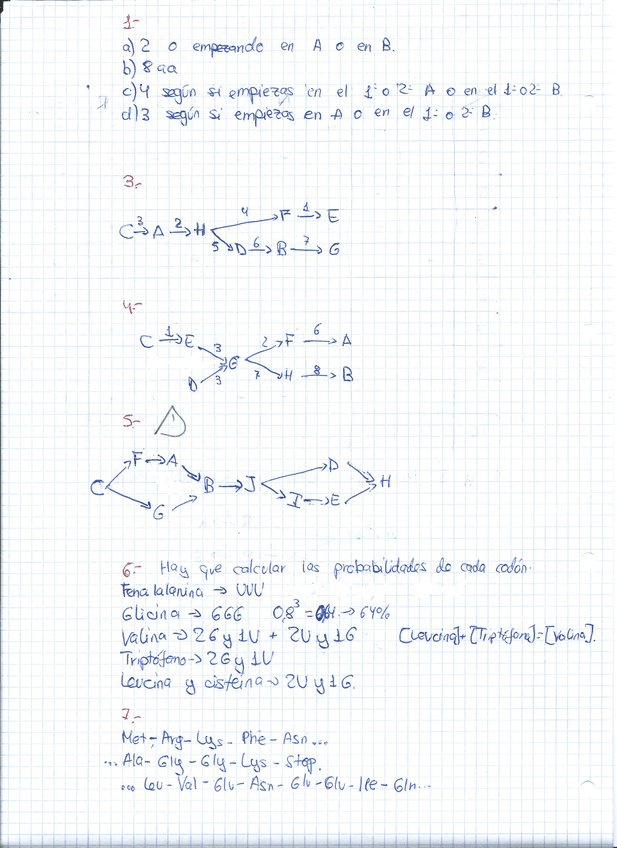 1-
a) 2 o empezando en A o en B.
b) 8 aa
c) 4 según si empiezas en el 1º o 2º A o en el 1º o 2º B
d) 3 según si empiezas en A o en el 1º o 2º B.
3.-
C 3→ A 2→ H 4→ F 1→ E
5→ D 6→ B 7→ G
4.-
C 1→ E 3→ G 2→ F 6→ A
D 3→ 7→ H 8→ B
5.- 1
C → F → A → B → J → D → H
G → I → E →
6.- Hay que calcular las probabilidades de cada codón.
Fenalalanina → UUU
Glicina → GGG 0,8³ = → 64%
Valina → 2G y 1U + 2U y 1G [Leucina]+[Triptófano]=[Valina].
Triptófano → 2G y 1U
Leucina y cisteina → 2U y 1G.
7.-
Met - Arg - Lys - Phe - Asn ...
... Ala - Gly - Gly - Lys - Stop.
... Leu - Val - Glu - Asn - Glu - Glu - Ile - Gln ...